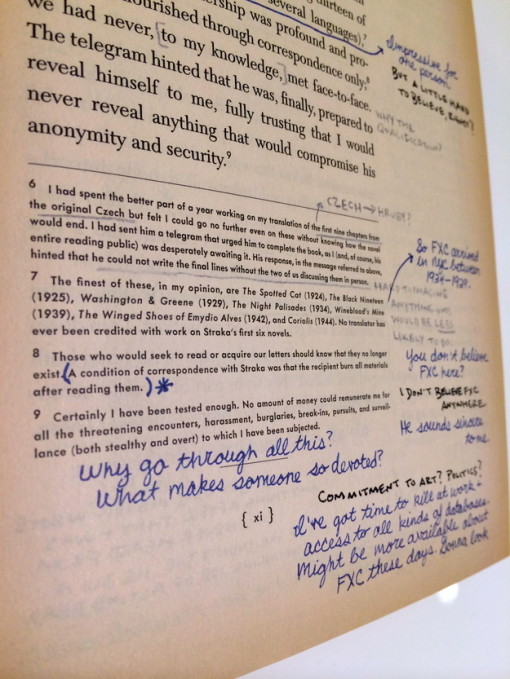 thirteen of
ership was profound and pro-
several languages).⁷
nourished through correspondence only;⁸
we had never, [to my knowledge,] met face-to-face.
The telegram hinted that he was, finally, prepared to
reveal himself to me, fully trusting that I would
never reveal anything that would compromise his
anonymity and security.⁹
Impressive for
one person.
BUT A LITTLE HARD
TO BELIEVE, RIGHT?
WHY THE
QUALIFICATION?
CZECH → HRUBY?
6 I had spent the better part of a year working on my translation of the first nine chapters from
the original Czech but felt I could go no further even on these without knowing how the novel
would end. I had sent him a telegram that urged him to complete the book, as I (and, of course, his
entire reading public) was desperately awaiting it. His response, in the message referred to above,
hinted that he could not write the final lines without the two of us discussing them in person.
So FXC arrived
in NYC between
1924–1929.
7 The finest of these, in my opinion, are The Spotted Cat (1924), The Black Nineteen
(1925), Washington & Greene (1929), The Night Palisades (1934), Wineblood's Mine
(1939), The Winged Shoes of Emydio Alves (1942), and Coriolis (1944). No translator has
ever been credited with work on Straka's first six novels.
HARD TO IMAGINE
ANYTHING WE'D
WOULD BE LESS
LIKELY TO DO.
8 Those who would seek to read or acquire our letters should know that they no longer
exist. (A condition of correspondence with Straka was that the recipient burn all materials
after reading them.) *
You don't believe
FXC here?
I DON'T BELIEVE FXC
ANYWHERE.
He sounds sincere
to me.
9 Certainly I have been tested enough. No amount of money could remunerate me for
all the threatening encounters, harassment, burglaries, break-ins, pursuits, and surveil-
lance (both stealthy and overt) to which I have been subjected.
Why go through all this?
What makes someone so devoted?
COMMITMENT TO ART? POLITICS?
I've got time to kill at work +
access to all kinds of databases.
Might be more available about
FXC these days. Gonna look
{ xi }